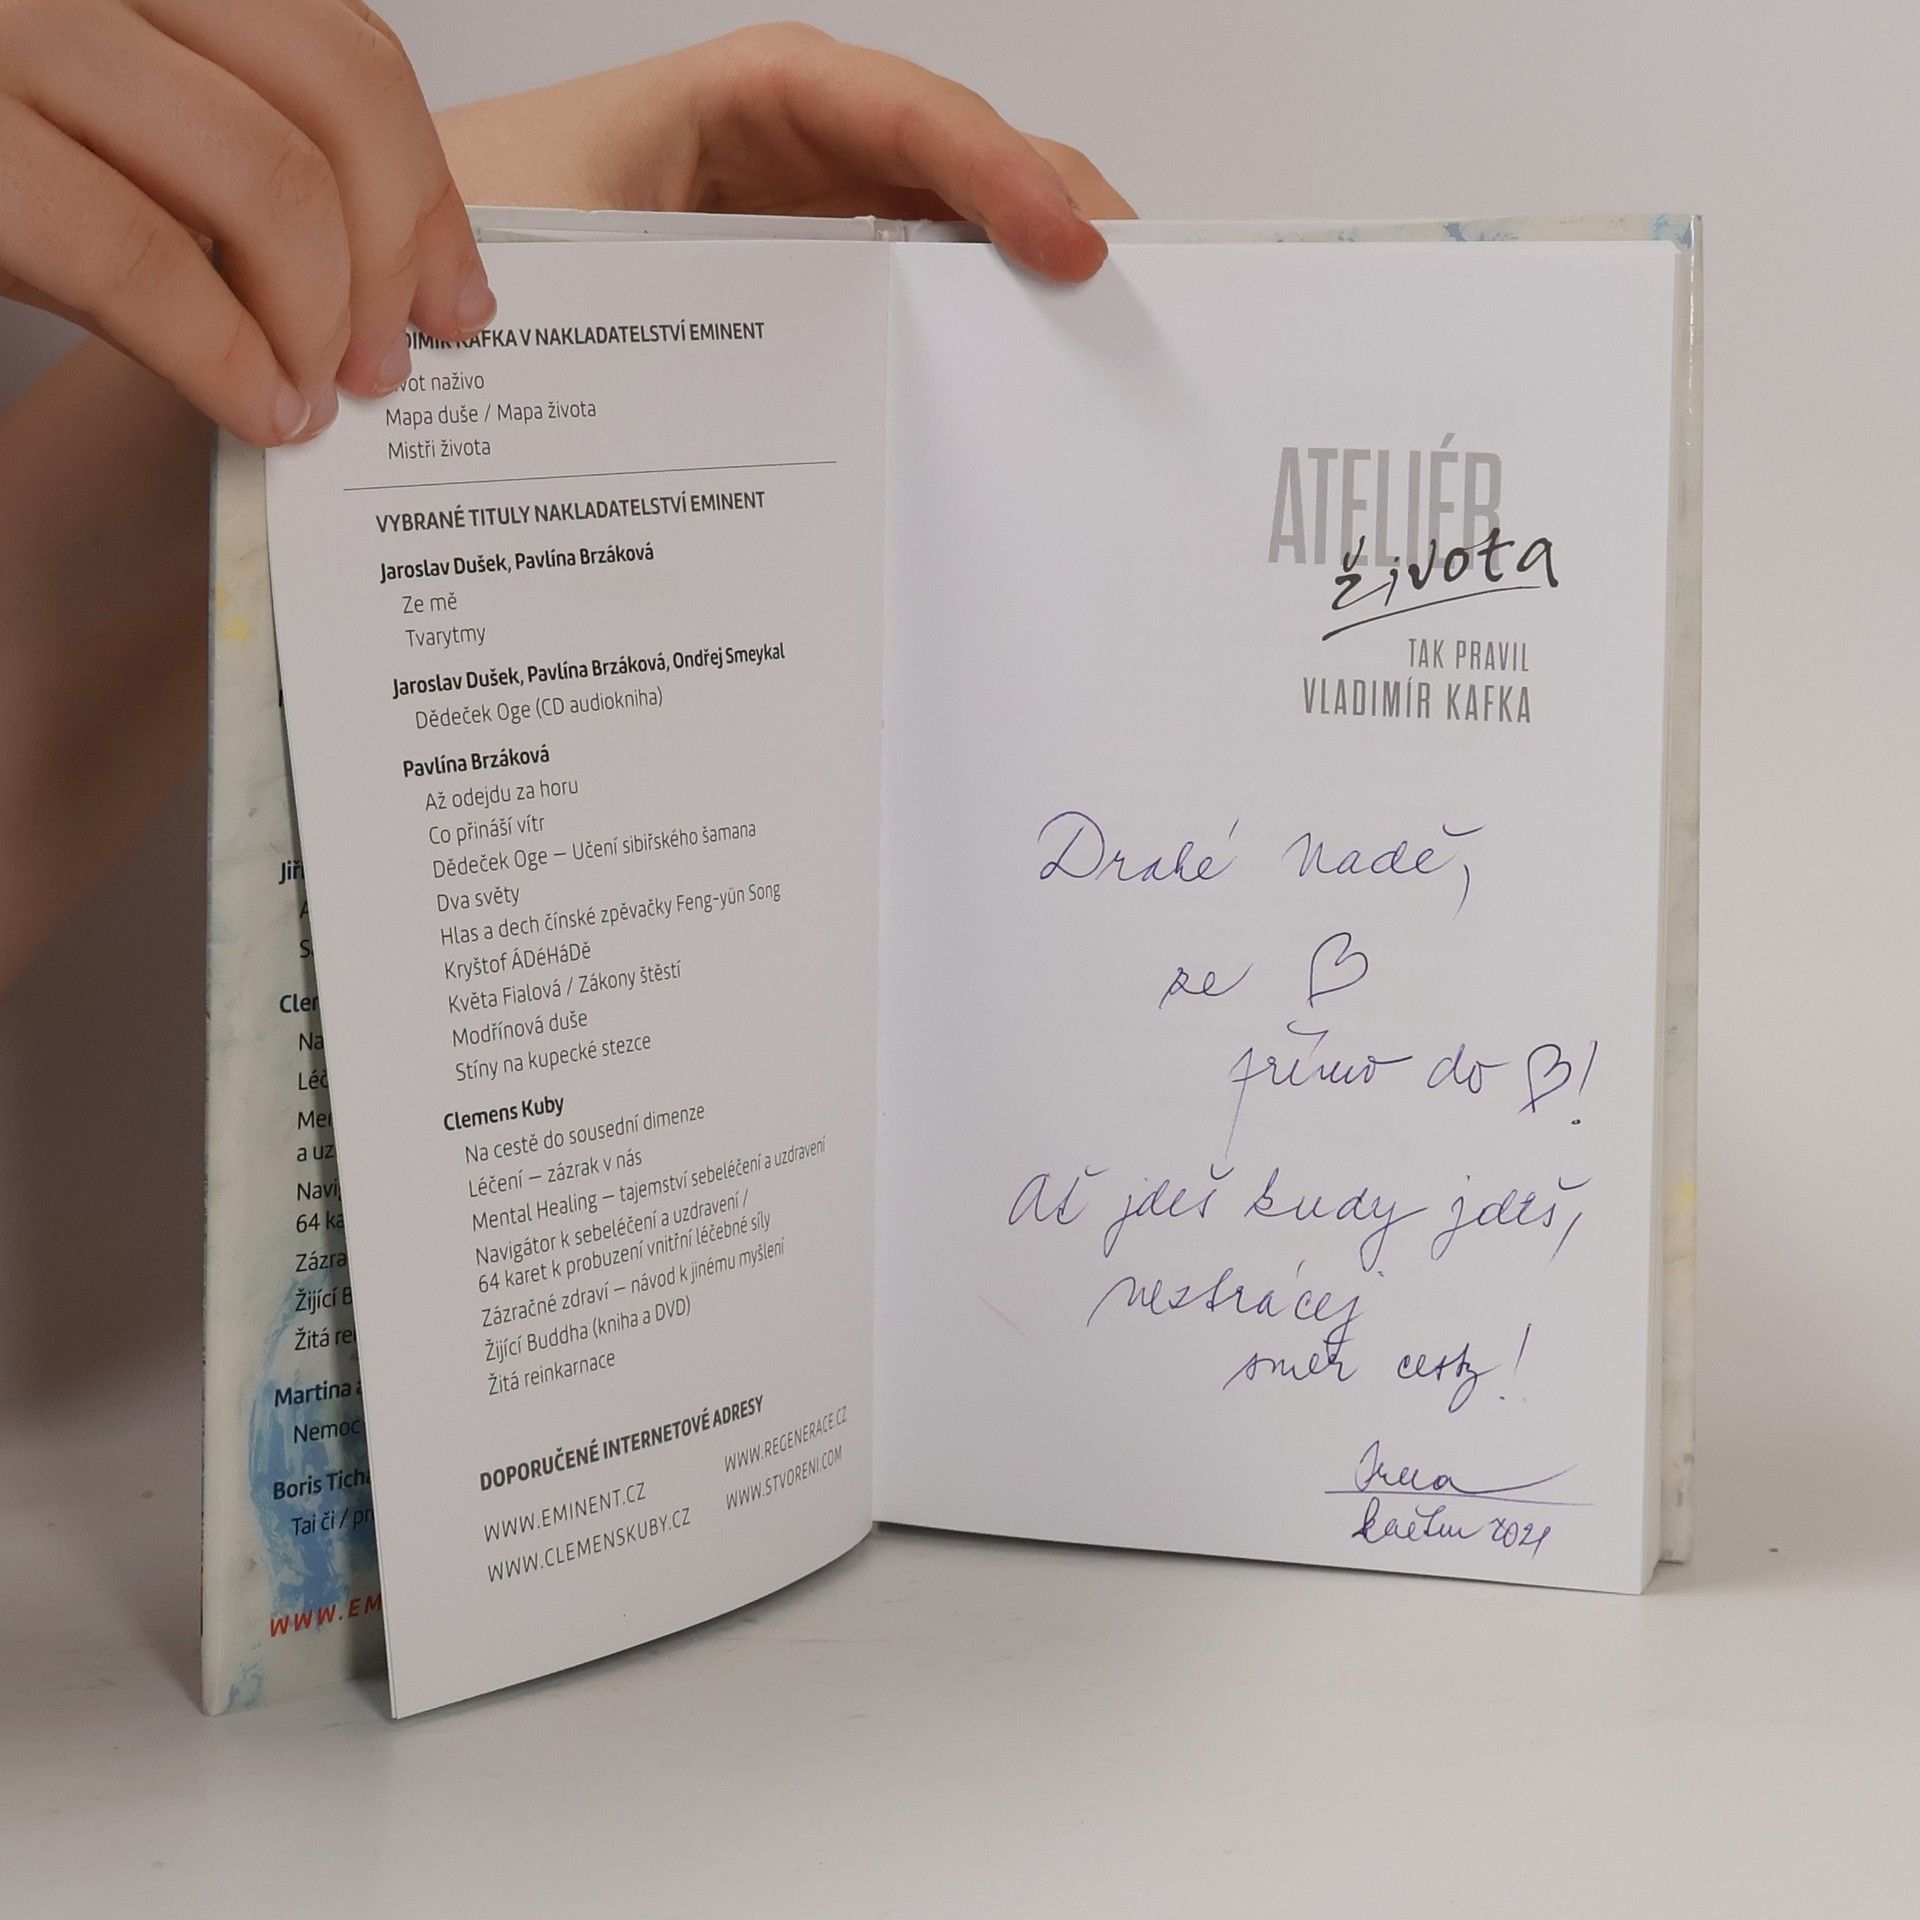 KAFKA V NAKLADATELSTVÍ EMINENT
naživo
Mapa duše / Mapa života
Mistři života
VYBRANÉ TITULY NAKLADATELSTVÍ EMINENT
Jaroslav Dušek, Pavlína Brzáková
Ze mě
Tvarytmy
Jaroslav Dušek, Pavlína Brzáková, Ondřej Smeykal
Dědeček Oge (CD audiokniha)
Pavlína Brzáková
Až odejdu za horu
Co přináší vítr
Dědeček Oge – Učení sibiřského šamana
Dva světy
Hlas a dech čínské zpěvačky Feng-yün Song
Kryštof ÁDéHáDě
Květa Fialová / Zákony štěstí
Modřínová duše
Stíny na kupecké stezce
Clemens Kuby
Na cestě do sousední dimenze
Léčení – zázrak v nás
Mental Healing – tajemství sebeléčení a uzdravení
Navigátor k sebeléčení a uzdravení /
64 karet k probuzení vnitřní léčebné síly
Zázračné zdraví – návod k jinému myšlení
Žijící Buddha (kniha a DVD)
Žitá reinkarnace
DOPORUČENÉ INTERNETOVÉ ADRESY
WWW.EMINENT.CZ WWW.REGENERACE.CZ
WWW.CLEMENSKUBY.CZ WWW.STVORENI.COM
Martina
Nemoc
Boris
Tai či /
ATELIÉR
života
TAK PRAVIL
VLADIMÍR KAFKA
Drahé Nadě,
ze ♡
přímo do ♡!
Ať jdeš kudy jdeš,
neztrácej
směr cesty!
květen 2021